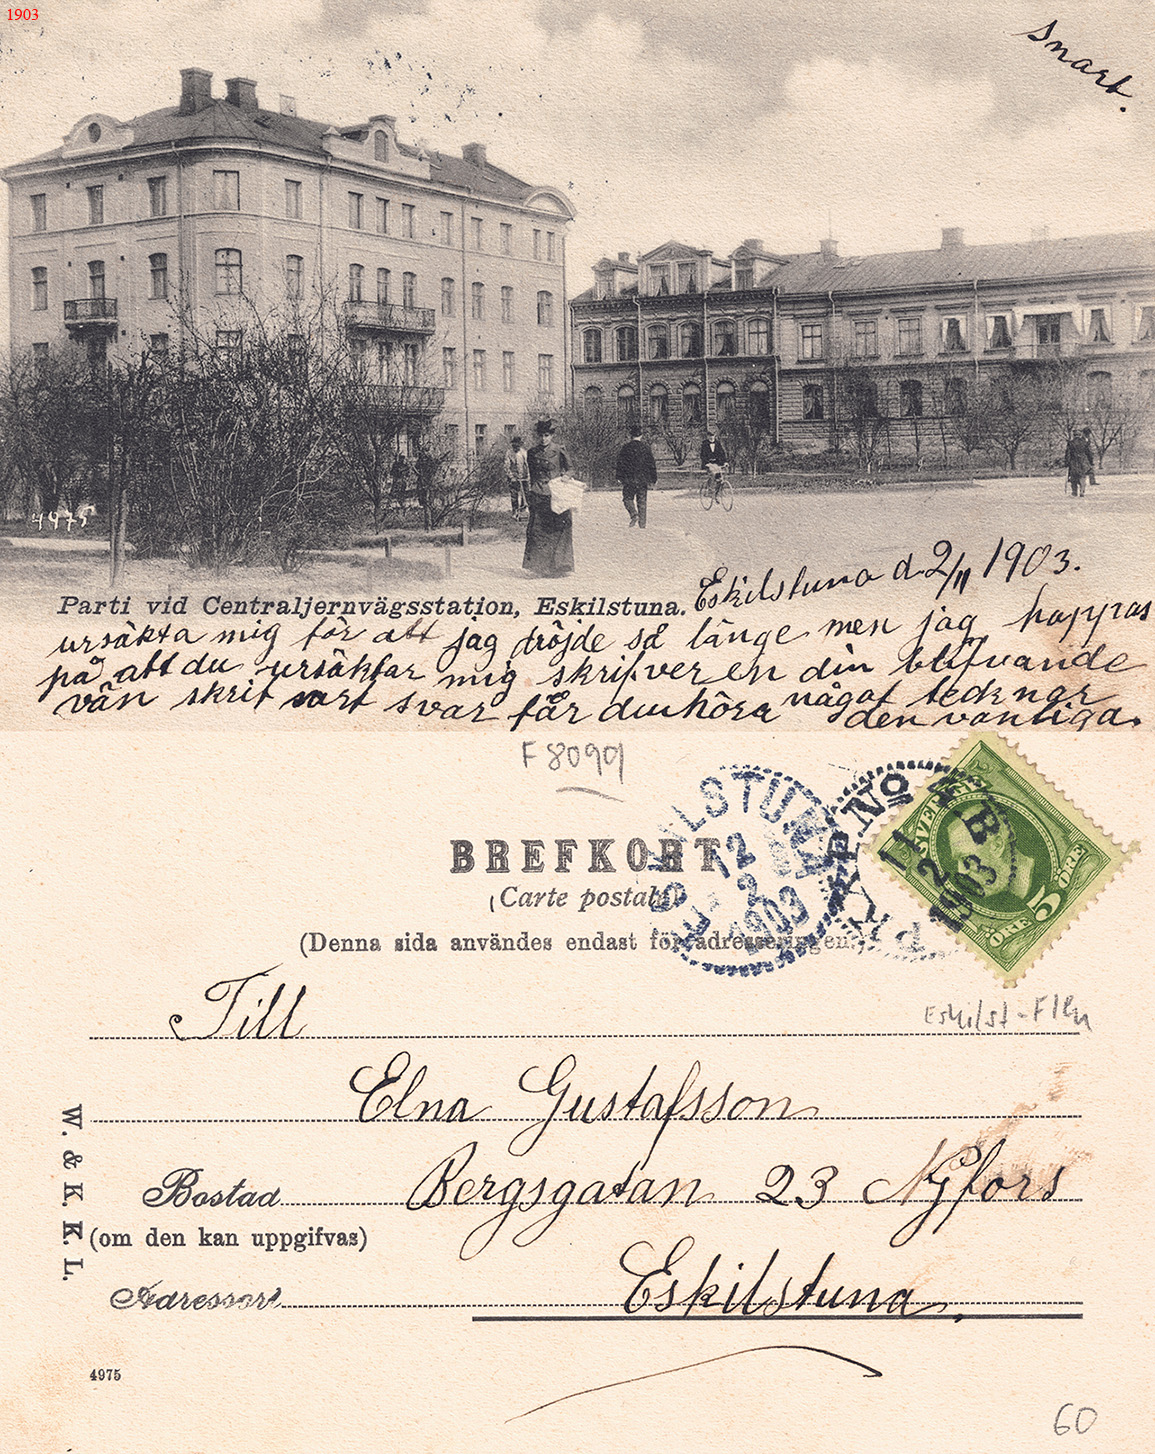 1903
snart.
4975
Parti vid Centraljernvägsstation, Eskilstuna.
Eskilstuna d. 2/11 1903.
ursäkta mig för att jag dröjde så länge men jag happas
på att du ursäktar mig skrifver en din blifvande
vän skrif snart svar får du höra något tecknar
den vanliga.
F 8099
BREFKORT
(Carte postale)
(Denna sida användes endast för adresseringen.)
ESKILSTUNA
12
2
1903
PKXP. No
11
2
1903
SVERIGE
5 ÖRE
ÖRE
Eskilst-Flen
Till
Elna Gustafsson
Bostad Bergsgatan 23 Nyfors
(om den kan uppgifvas)
Adressort Eskilstuna.
W. & K. K. L.
4975
60